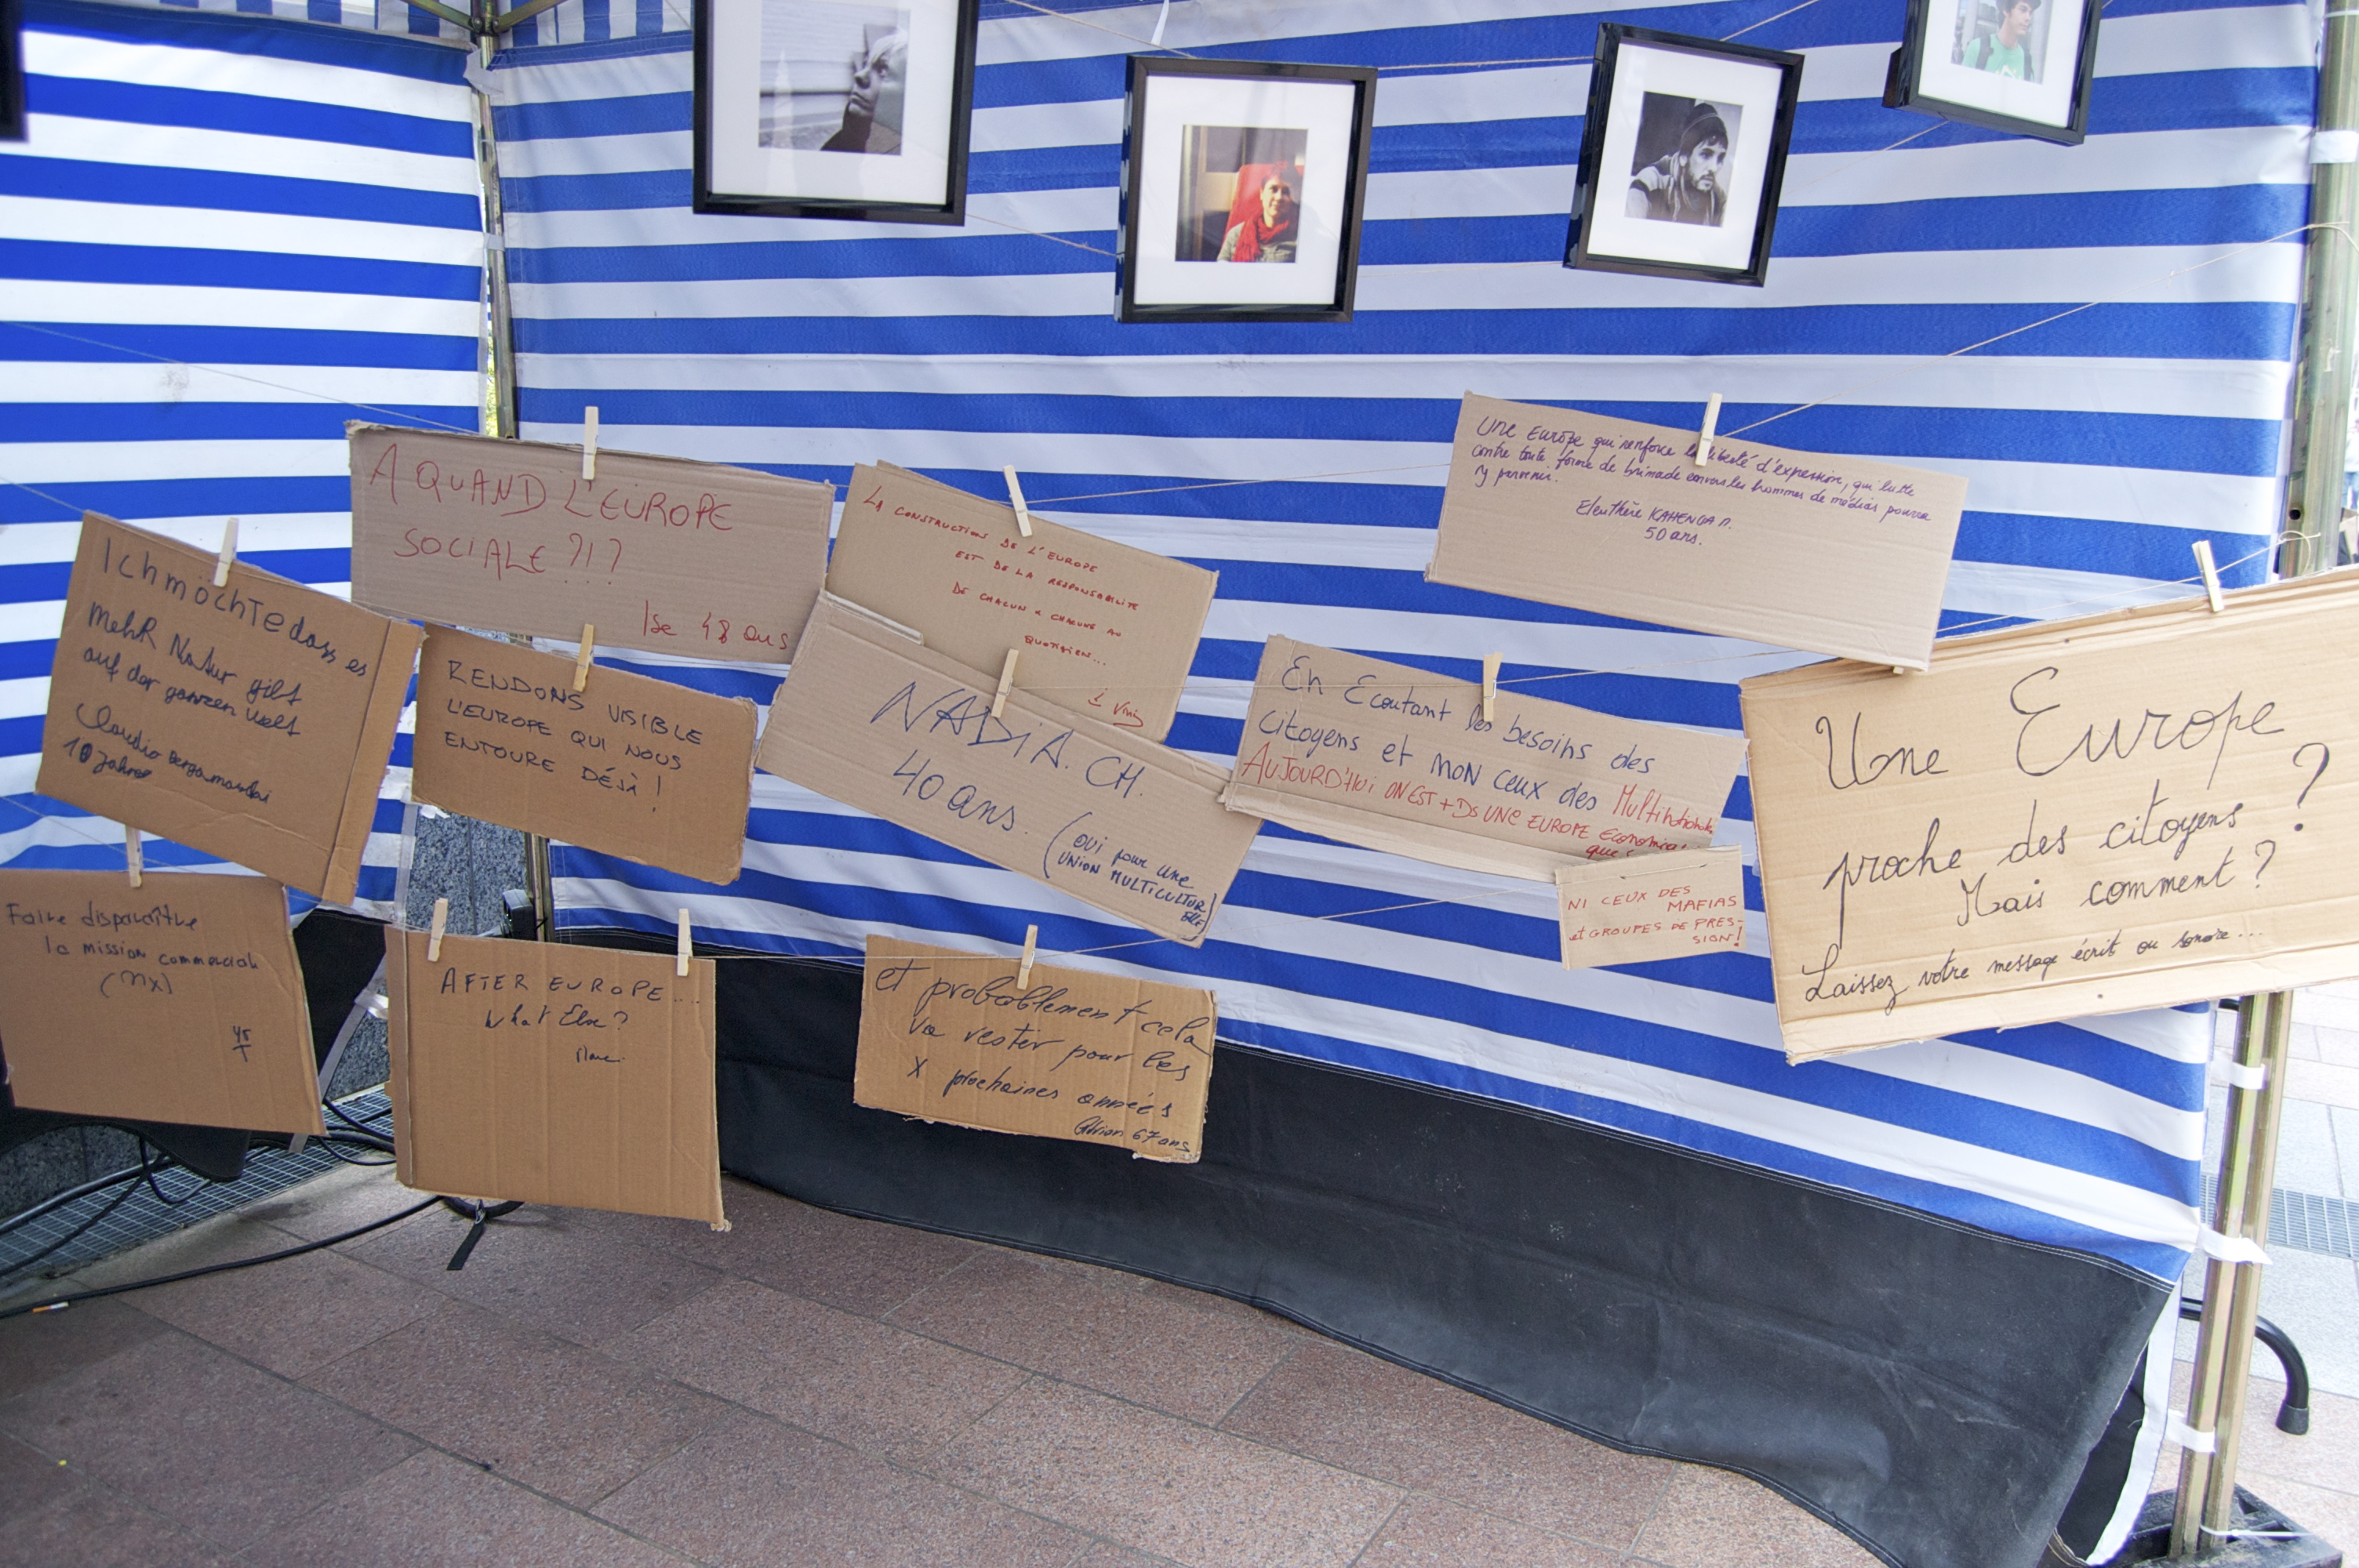 A QUAND L'EUROPE
SOCIALE ?!?
Ise 48 ans
LA CONSTRUCTION DE L'EUROPE
EST DE LA RESPONSABILITE
DE CHACUN & CHACUNE AU
QUOTIDIEN...
Une Europe qui renforce la liberté d'expression, qui lutte
contre toute forme de brimade envers les hommes de médias pourra
y parvenir.
Eleuthère KAHENGA
50 ans.
Ich möchte dass es
mehR Natur gibt
auf der ganzen Welt
Claudio Bergamaschi
10 Jahre
RENDONS VISIBLE
L'EUROPE QUI NOUS
ENTOURE DÉJÀ !
NADIA. CH.
40 ans.
(OUI pour une
UNION MULTICULTUR
ELLE)
En Ecoutant les besoins des
citoyens et NON ceux des Multinationales
AUJOURD'HUI ON EST + Ds UNE EUROPE Economi
que!
NI CEUX DES
MAFIAS
et GROUPES DE PRES-
SION!
Une Europe
proche des citoyens ?
Mais comment ?
Laissez votre message écrit ou sonore...
Faire disparaître
la mission commerciale
AFTER EUROPE....
What Else?
et probablement cela
va rester pour les
X prochaines années
67 ans